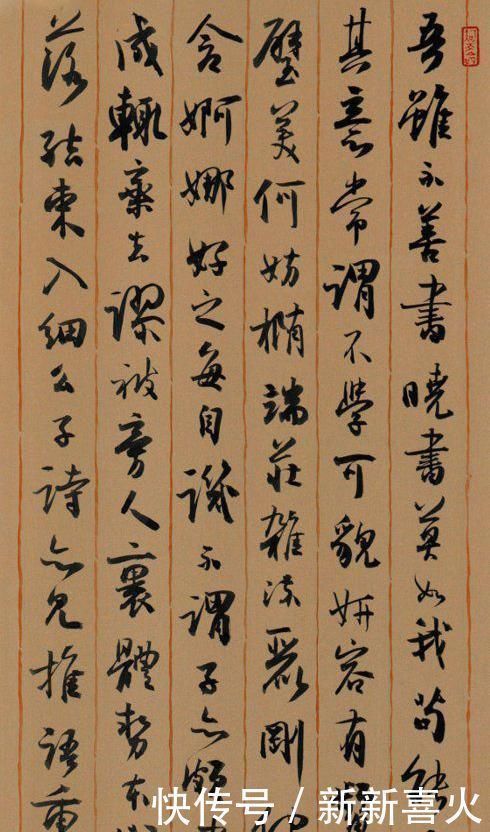 吾雖不善書曉書莫如我苟能
其意常謂不學可貌妍容有
璧美何妨橢端莊雜流麗剛
含婀娜好之每自譏不謂子亦頗
成輒棄去謬被旁人裹體勢本
落結束入細么子詩亦見推語重
快传号 / 新新喜火